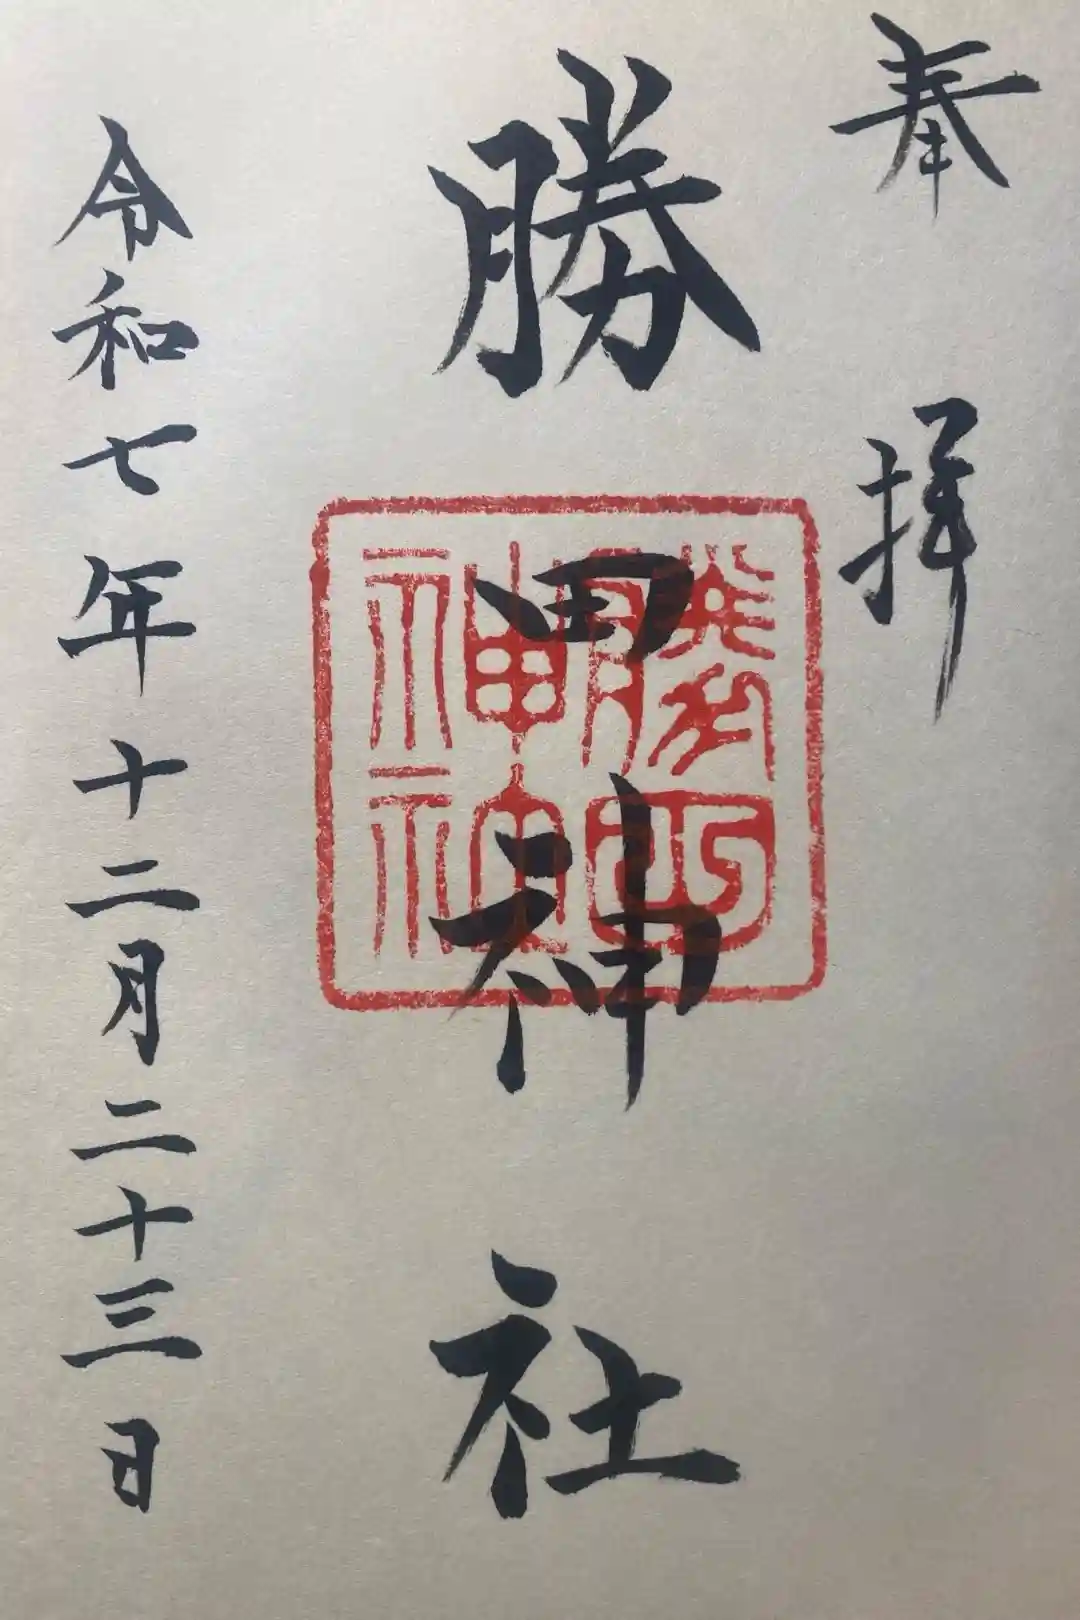 奉拝
勝田神社
勝田神社
令和七年十二月二十三日